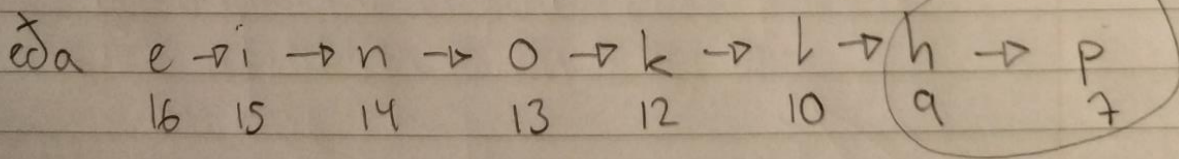 eða e → i → n → o → k → l → h → p
16 15 14 13 12 10 9 7